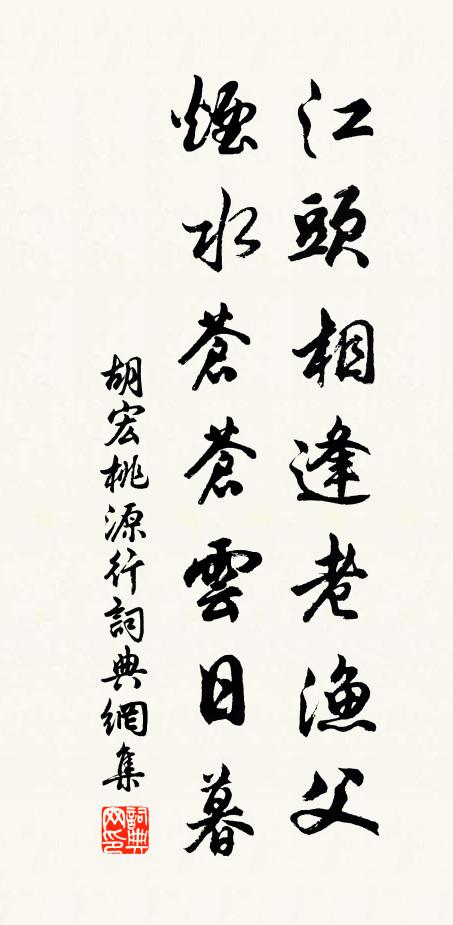 江頭相逢老漁父
煙水蒼蒼雲日暮
胡宏桃源行詞典網集
詞典網印